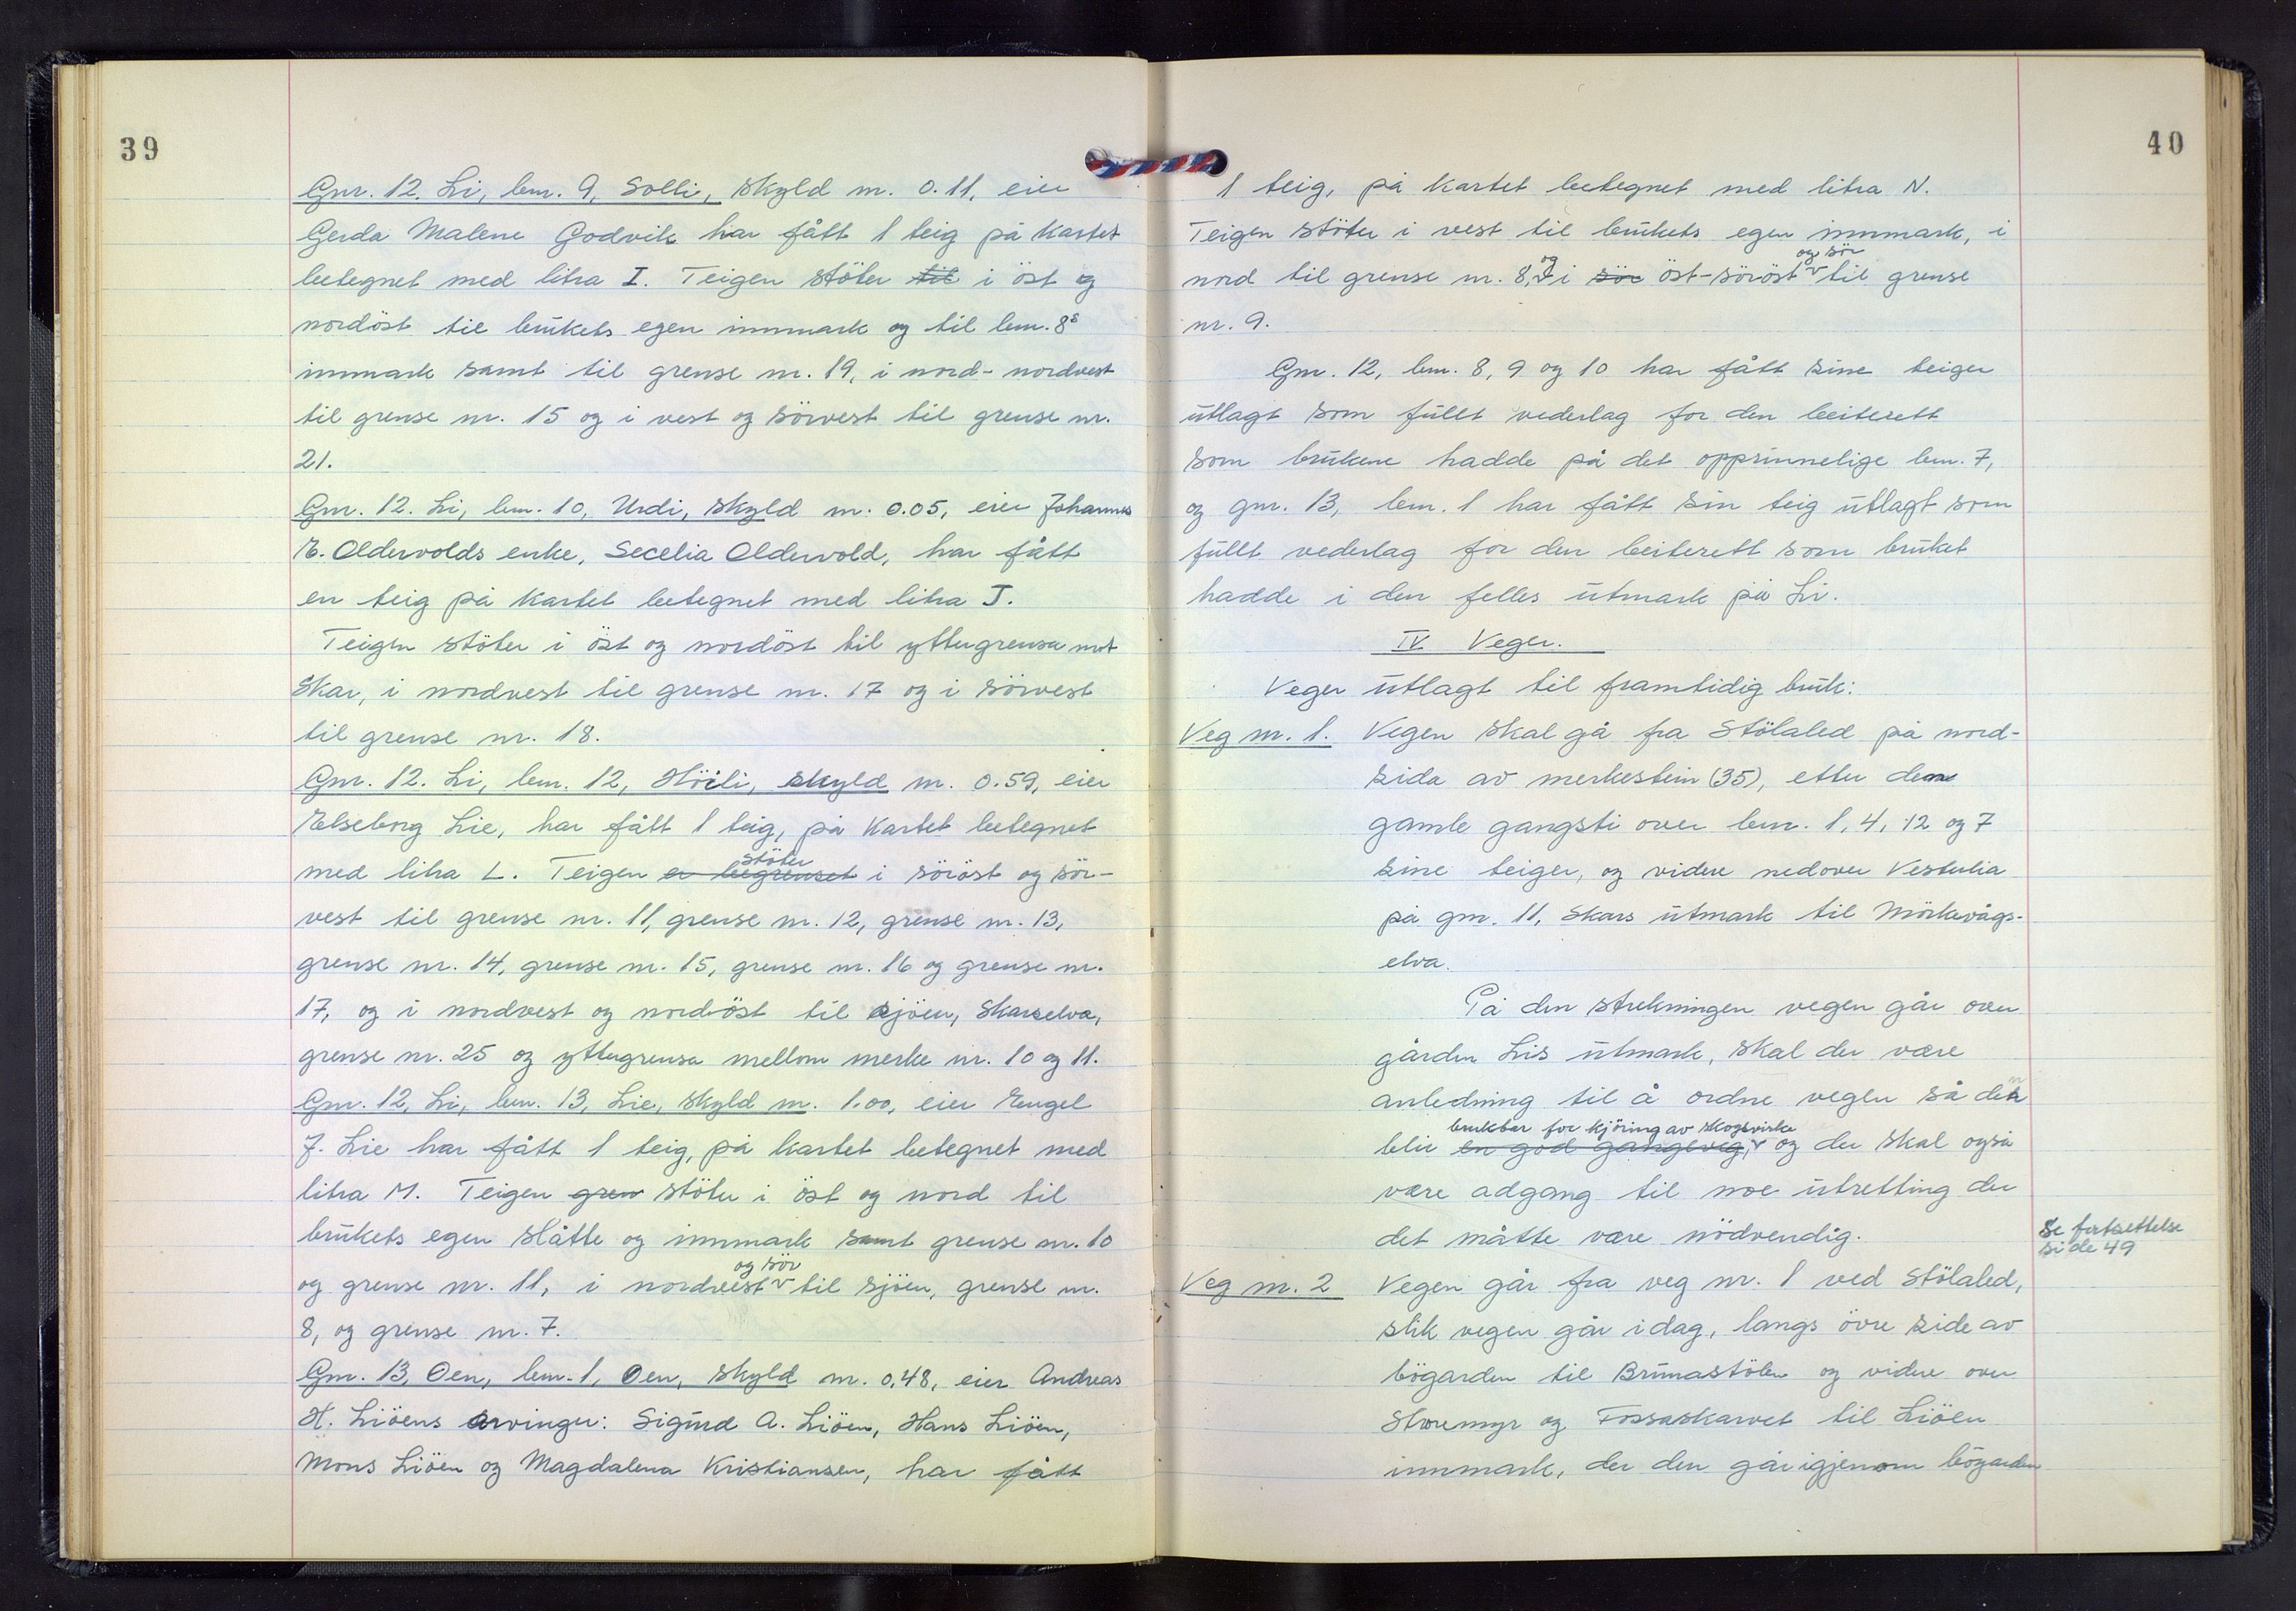 39
Gnr. 12. Li, bnr. 9, Solli, skyld m. 0.11, eier
Gerda Malene Godvik har fått 1 teig på kartet
betegnet med litra I. Teigen stöter til i öst og
nordöst til brukets egen innmark og til bnr. 8s
innmark samt til grense nr. 19, i nord- nordvest
til grense nr. 15 og i vest og sörvest til grense nr.
21.
Gnr. 12. Li, bnr. 10, Urdi, skyld m. 0.05, eier Johannes
E. Oldervolds enke, Secelia Oldervold, har fått
en teig på kartet betegnet med litra J.
Teigen stöter i öst og nordöst til yttergrensa mot
Skar, i nordvest til grense nr. 17 og i sörvest
til grense nr. 18.
Gnr. 12. Li, bnr. 12, Höili, skyld m. 0.59, eier
Elseborg Lie, har fått 1 teig, på kartet betegnet
stöter
med litra L. Teigen er begrenset i söröst og sör-
vest til grense nr. 11, grense nr. 12, grense nr. 13,
grense nr. 14, grense nr. 15, grense nr. 16 og grense nr.
17, og i nordvest og nordöst til sjöen, Skarselva,
grense nr. 25 og yttergrensa mellom merke nr. 10 og 11.
Gnr. 12, Li, bnr. 13, Lie, skyld m. 1.00, eier Engel
J. Lie har fått 1 teig, på kartet betegnet med
litra M. Teigen gren stöter i öst og nord til
brukets egen slåtte og innmark samt grense nr. 10
og sör
og grense nr. 11, i nordvest v til sjöen, grense nr.
8, og grense nr. 7.
Gnr. 13, Oen, bnr. 1, Oen, skyld m. 0,48, eier Andreas
H. Liöens arvinger: Sigurd A. Liöen, Hans Liöen,
Mons Liöen og Magdalena Kristiansen, har fått
40
1 teig, på kartet betegnet med litra N.
Teigen stöter i vest til brukets egen innmark, i
og og sör
nord til grense nr. 8, v i sör öst-söröst v til grense
nr. 9.
Gnr. 12, bnr. 8, 9 og 10 har fått sine teiger
utlagt som fullt vederlag for den beiterett
som brukene hadde på det opprinnelige bnr. 7,
og gnr. 13, bnr. 1 har fått sin teig utlagt som
fullt vederlag for den beiterett som bruket
hadde i den felles utmark på Li.
IV Veger.
Veger utlagt til framtidig bruk:
Veg nr. 1. Vegen skal gå fra Stölaled på nord-
sida av merkestein (35), etter den
gamle gangsti over bnr. 1, 4, 12 og 7
sine teiger, og videre nedover Vesterlia
på gnr. 11, Skars utmark til Mörkevågs-
elva.
På den strekningen vegen går over
gården Lis utmark, skal der være
anledning til å ordne vegen så den
brukbar for kjöring av skogsvirke
blir en god gangeveg, v og der skal også
være adgang til noe utretting der
det måtte være nödvendig.
Se fortsettelse
side 49
Veg nr. 2 Vegen går fra veg nr. 1 ved Stölaled,
slik vegen går idag, langs övre side av
bögarden til Brunastölen og videre over
Storemyr og Fossaskarvet til Liöen
innmark, der den går igjenom bögarden